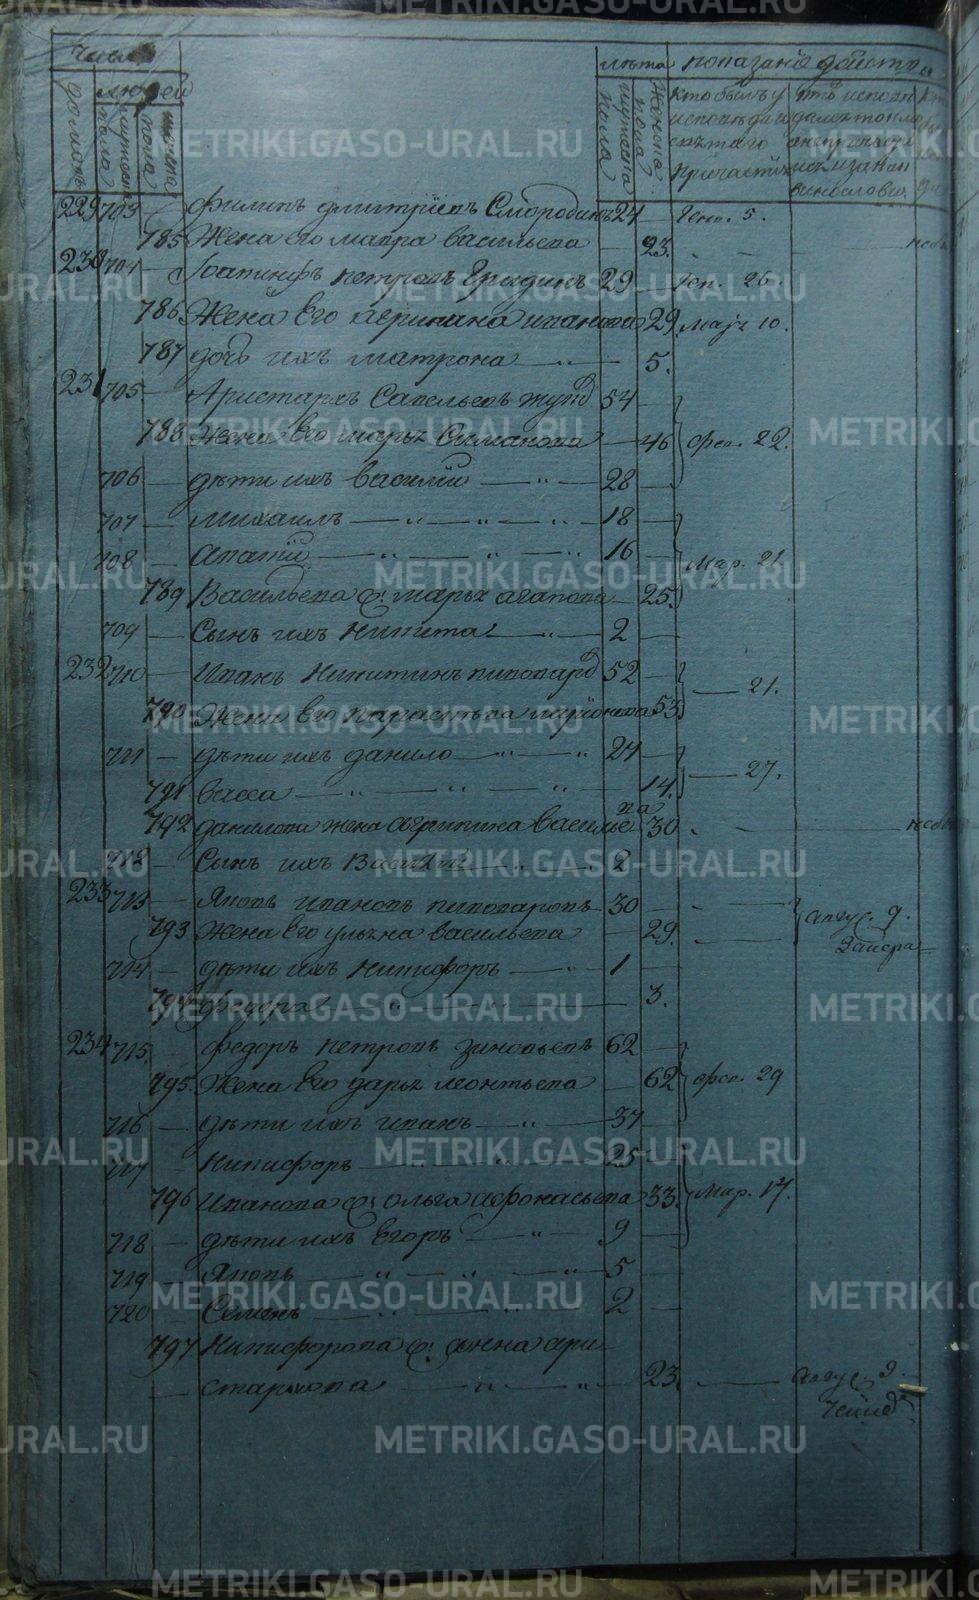 число
людей
домовъ
мужеска
пола
женска
лѣта
мужеска
пола
женска
пола
показанiе действа
кто былъ у
исповѣди и
свѣтаго
причастiя
кто исповѣ
дался токмо
анепричасти
229 703 — Филипъ Дмитрiевъ Смородинъ 24 — Ген. 5.
785 Жена Его Мавра Васильева — 23.
230 704 — Iоакинфъ Петровъ 29 — Ген. 26.
786 Жена Его Иванова 29. Март 10.
787 дочь ихъ Матрона — " — 5.
231 705 — Аристархъ Савельевъ 54
788 Жена Его Марья Симакова — 46 Фев. 22.
706 — дѣти ихъ Василiй — " — 28
707 — Михаилъ — " — " — 18
708 — Ипатiй — " — " — 16 — Мар. 21.
789 Васильева ж: Марья Агапова — 25.
709 — Сынъ ихъ Никита — " — 2
232 710 — Иванъ Никитинъ Пивовар 52 — 21.
790 Жена Его Парасковья 53.
711 — дѣти ихъ Данило — " — " 24 — 27.
791 Васса — " — " — " — 14.
792 Данилова жена Агрипина Василье
ва 30
712 — Сынъ ихъ Василiй — " — 2
233 713 — Яковъ Ивановъ Пивоваровъ — 30 — Авгус. 9.
793 Жена Его Ульяна Васильева — 29.
714 — дѣти ихъ Никифоръ — " 1
794 Федора — " — " — 3.
234 715 — Федоръ Петровъ Зиновьевъ 62
795 Жена Его Дарья Леонтьева — 62 Фев. 29
716 — дѣти ихъ Иванъ — " — 37
717 Никифоръ — " — " — 25
796 Иванова ж: Ольга Афонасьева 33. Мар. 17.
718 — дѣти ихъ Егоръ — " — 9
719 — Яковъ — " — " — 5
720 — Семенъ — " — " — 2
797 Никифорова ж: Анна Ари
стархова — " — " — 23. — Авгус. 9
METRIKI.GASO-URAL.RU